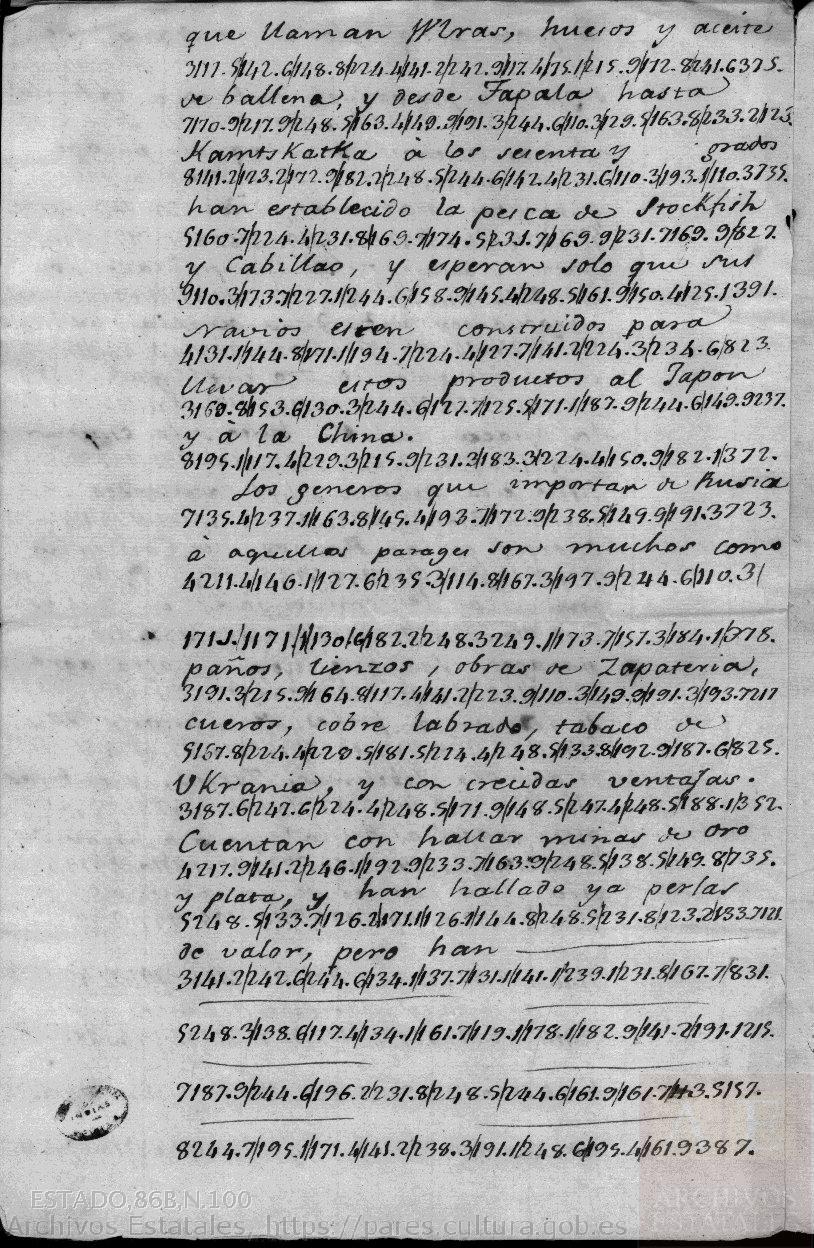 que llaman Wlras, huesos y aceite
3117.5/142.6/148.8/224.4/141.2/242.9/117.4/175.1/215.9/172.8/241.6375.
de ballena, y desde Tapala hasta
7170.9/217.9/248.5/163.4/149.9/191.3/244.6/110.3/129.5/163.8/233.2/123.
KamtsKatKa à los sesenta y grados
8141.2/123.2/172.9/182.2/248.5/244.6/142.4/231.6/110.3/193.1/110.3735.
han establecido la pesca de Stockfish
5160.7/224.4/231.8/169.7/174.5/231.7/169.9/231.7169.9/827.
y Cabillao, y esperan solo que sus
9110.3/173.7/227.1/244.6/158.9/145.4/248.5/161.9/150.4/125.1391.
Navios esten construidos para
4131.1/144.8/171.1/194.7/224.4/127.7/141.2/224.3/234.6/823
llevar estos productos al Japon
3160.8/153.6/130.3/244.6/127.7/125.5/171.1/187.9/244.6/149.9237.
y à la China.
8195.1/117.4/229.3/215.9/231.3/183.3/224.4/150.9/182.1/372.
Los generos que importan de Rusia
7135.4/237.1/163.8/145.4/193.7/172.9/238.5/149.9/191.3723.
à aquellos parages son muchos como
4211.4/146.1/127.6/235.3/114.8/167.3/197.9/244.6/110.3/
171.1/1171/1/130.6/182.2/248.3249.1/173.7/157.3/184.1/378.
paños, lienzos, obras de Zapateria,
3191.3/215.9/164.8/117.4/141.2/223.9/110.3/149.9/191.3/193.7217
cueros, cobre labrado, tabaco de
5167.8/224.4/220.5/181.5/224.4/248.5/133.8/192.9/187.6/825.
UKrania, y con crecidas ventajas.
3187.6/247.6/224.4/248.5/171.9/148.5/247.4/248.5/188.1/352.
Cuentan con hallar minas de oro
4217.9/141.2/246.1/192.9/233.7/163.9/248.5/138.5/149.8/735.
y plata, y han hallado ya perlas
5248.5/133.7/126.2/171.1/126.1/144.8/248.5/231.8/123.2/133.7121.
de valor, pero han
3141.2/242.6/244.6/134.1/137.7/131.1/141.1/239.1/231.8/167.7/831.
5248.3/138.6/117.4/134.1/161.7/119.1/178.1/182.9/141.2/191.1215.
7187.9/244.6/196.2/231.8/248.5/244.6/161.9/161.7/143.5157.
8244.7/195.1/171.4/141.2/238.3/191.1/248.6/195.4/161.9387.
ESTADO,86B,N.100
Archivos Estatales, https://pares.cultura.gob.es
ARCHIVOS
ESTATALES